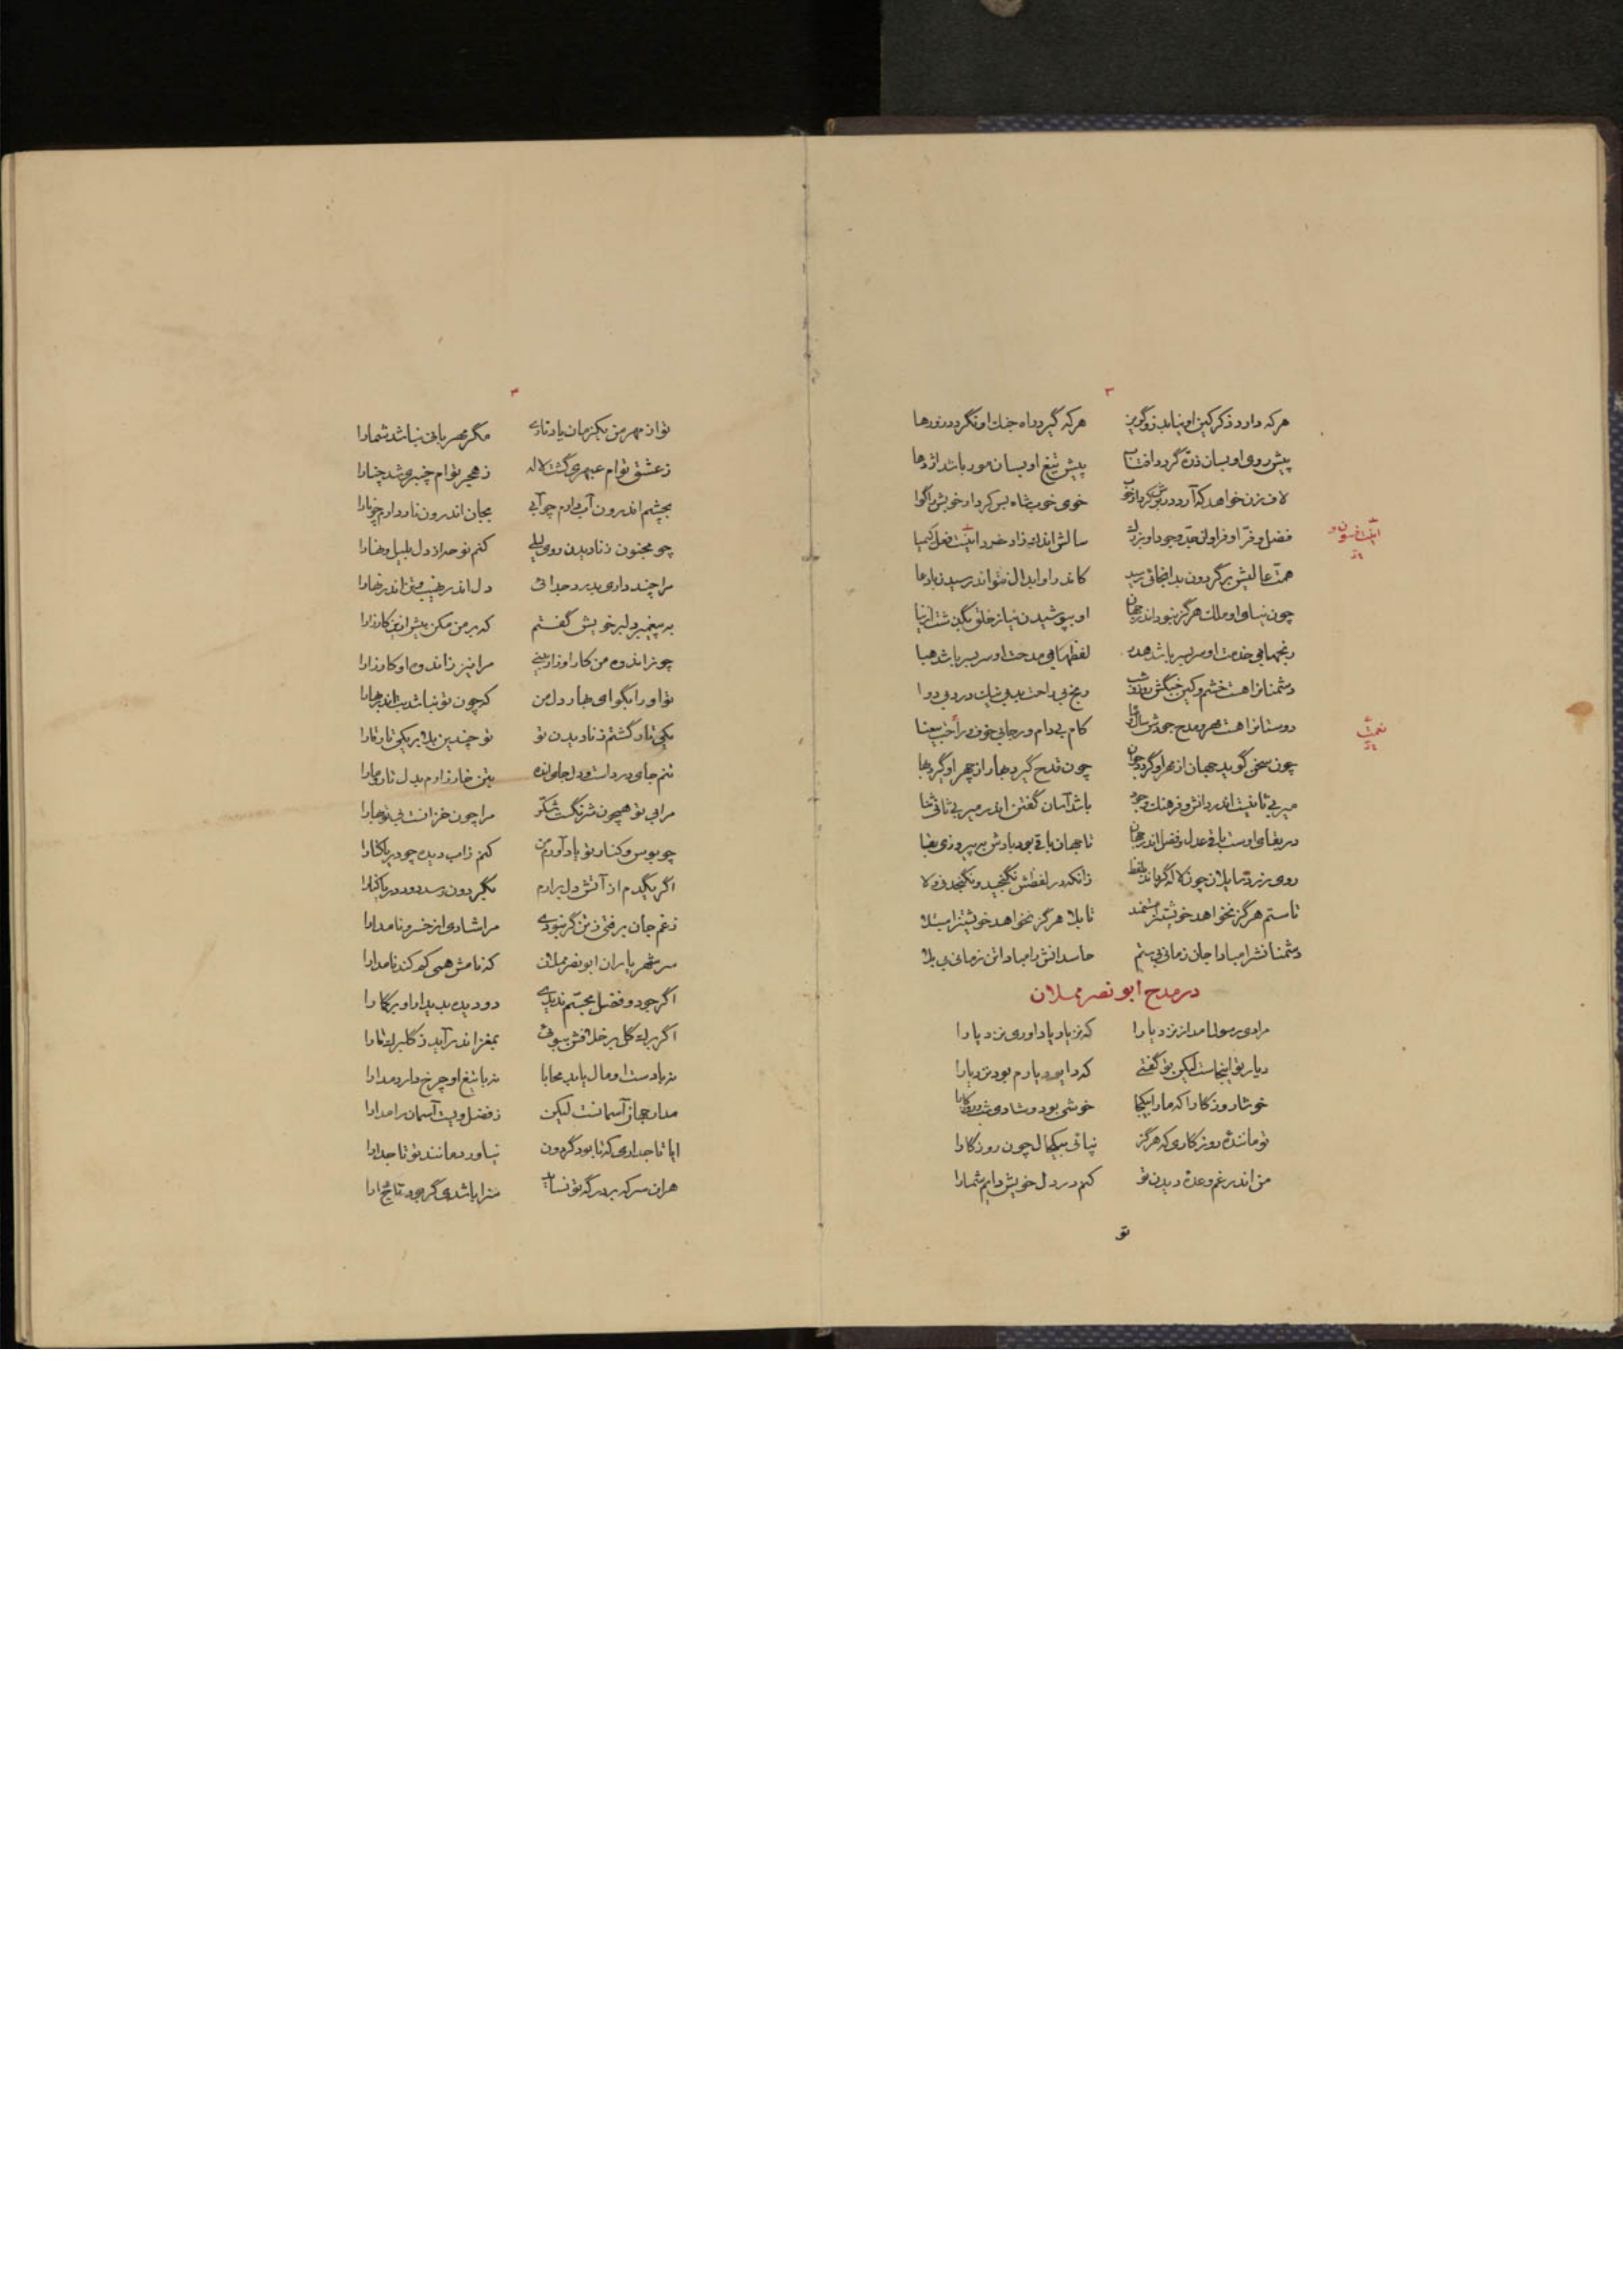 ۲
هرکه دارد ذکر کین او نیابد زو گریز هرکه گیرد راه جنك او نگردد زو رها
پیش روی او بسان ذره گردد افتاب پیش تیغ او بسان مور باشد اژدها
لاف زن خواهد که آرد خوی شاه بس کردار خویش را گوا
فضل و فر او فراوان سالش اندك زاد
همت عالیش بر گردون بدانجائی رسید کاندر او ابدال نتواند رسیدن با دعا
چون نیای او ملك هرگز نبود اندر جهان او بپوشیدن نیاز خلق بگذشت از نیا
رنجها بی خدمت او سر بسر باشد هدر لفظها بی مدحت او سر بسر باشد هبا
دشمنانرا هست خشم و کین جنگش روز و شب رنج بی راحت بدی بی نیك درد بی دوا
دوستانرا هست مهر و مدح کام بی دام و رجا بی خوف و راحت بی عنا
چون سخن گوید جهان از مهر او گردد جوان چون قدح گیرد بهار از چهر او گیرد بها
میر بی ثانیست اندر دانش و فرهنك و جود باشد آسان گفتن اندر میر بی ثانی ثنا
در بقای اوست باقی عدل و فضل اندر جهان تا جهان باقی بود بادش به پیروزی بقا
روی زرد مابلان چون لاله گرداند بلفظ زانکه در لفظش نگنجید و نگنجد لن و لا
تا ستم هرگز نخواهد خویشتن را مستمند تا بلا هرگز نخواهد خویشتن را مبتلا
دشمنانش را مبادا جان زمانی بی ستم حاسدانش را مبادا تن زمانی بی بلا
در مدح ابو نصر مملان
مرا دی رسول آمد از نزد یارا که نزد یار یاد اوری نزد یارا
دیار تو اینجاست لیکن تو گفتی که دایم دیارم بود نزد یارا
خوشا روزگارا که ما را بیکجا خوشی بود و شادی شب و روزگارا
تو ماننده روزگاری که هرگز نپائی بیکحال چون روزگارا
من اندر غم وعده دیدن تو کنم در دل خویش دایم شمارا
تو
۳
تو از مهر من یکزمان یاد ناری مگر مهربانی نباشد شمارا
ز عشق توام عبهری گشت لاله ز هجر توام خیبری شد چنارا
بچشم اندرون آب دارم چو آبی بجان اندرون نار دارم چو نارا
چو مجنون ز نادیدن روی لیلی کنم نوحه از دل بلیل و نهارا
مرا چند داری بدرد جدائی دل اندر نهیب و تن اندر نهارا
به پیغمبر دلبر خویش گفتم که بر من مکن بیش ازین کارزارا
چو تو اندوه من کار او زار بینی مرا نیز ز اندوه او کار زارا
تو او را بگو ای بهار دل من که چون تو نباشد بت اندر بهارا
یکی تار گشتم ز نادیدن تو تو چندین بلا بر یکی تار تارا
تنم جای درد است و دل جای انده بتن خار زارم بدل تار و مارا
مرا بی تو همچون شرنگست شکر مرا چون خزانست بی تو بهارا
چو بوس و کنار تو یاد آورم من کنم ز اب دیده چو دریا کنارا
اگر بگذرم از آتش دل برارم بگردون رسد دود دریا کنارا
ز غم جان برفتی ز تن گر نبودی مرا شادی از خسرو نامدارا
سر شهریاران ابونصر مملان که نامش همی کم کند نامدارا
اگر جود و فضل مجسم ندیدی دو دیده بدیدار او بر گمارا
اگر برك گل بر خلاقش ببوئی بمغز اندر آید ز گلبرك خارا
نه با دست او مال یابد محابا نه با تیغ او چرخ دارد مدارا
مدار جهاز آسمانست لیکن ز فضل ویست آسمان را مدارا
ایا تاجداری که تا بود گردون نیاورد مانند تو تاجدارا
هر ان سر که بر درگه تو نساید سزا باشد گر بود تاج دارا